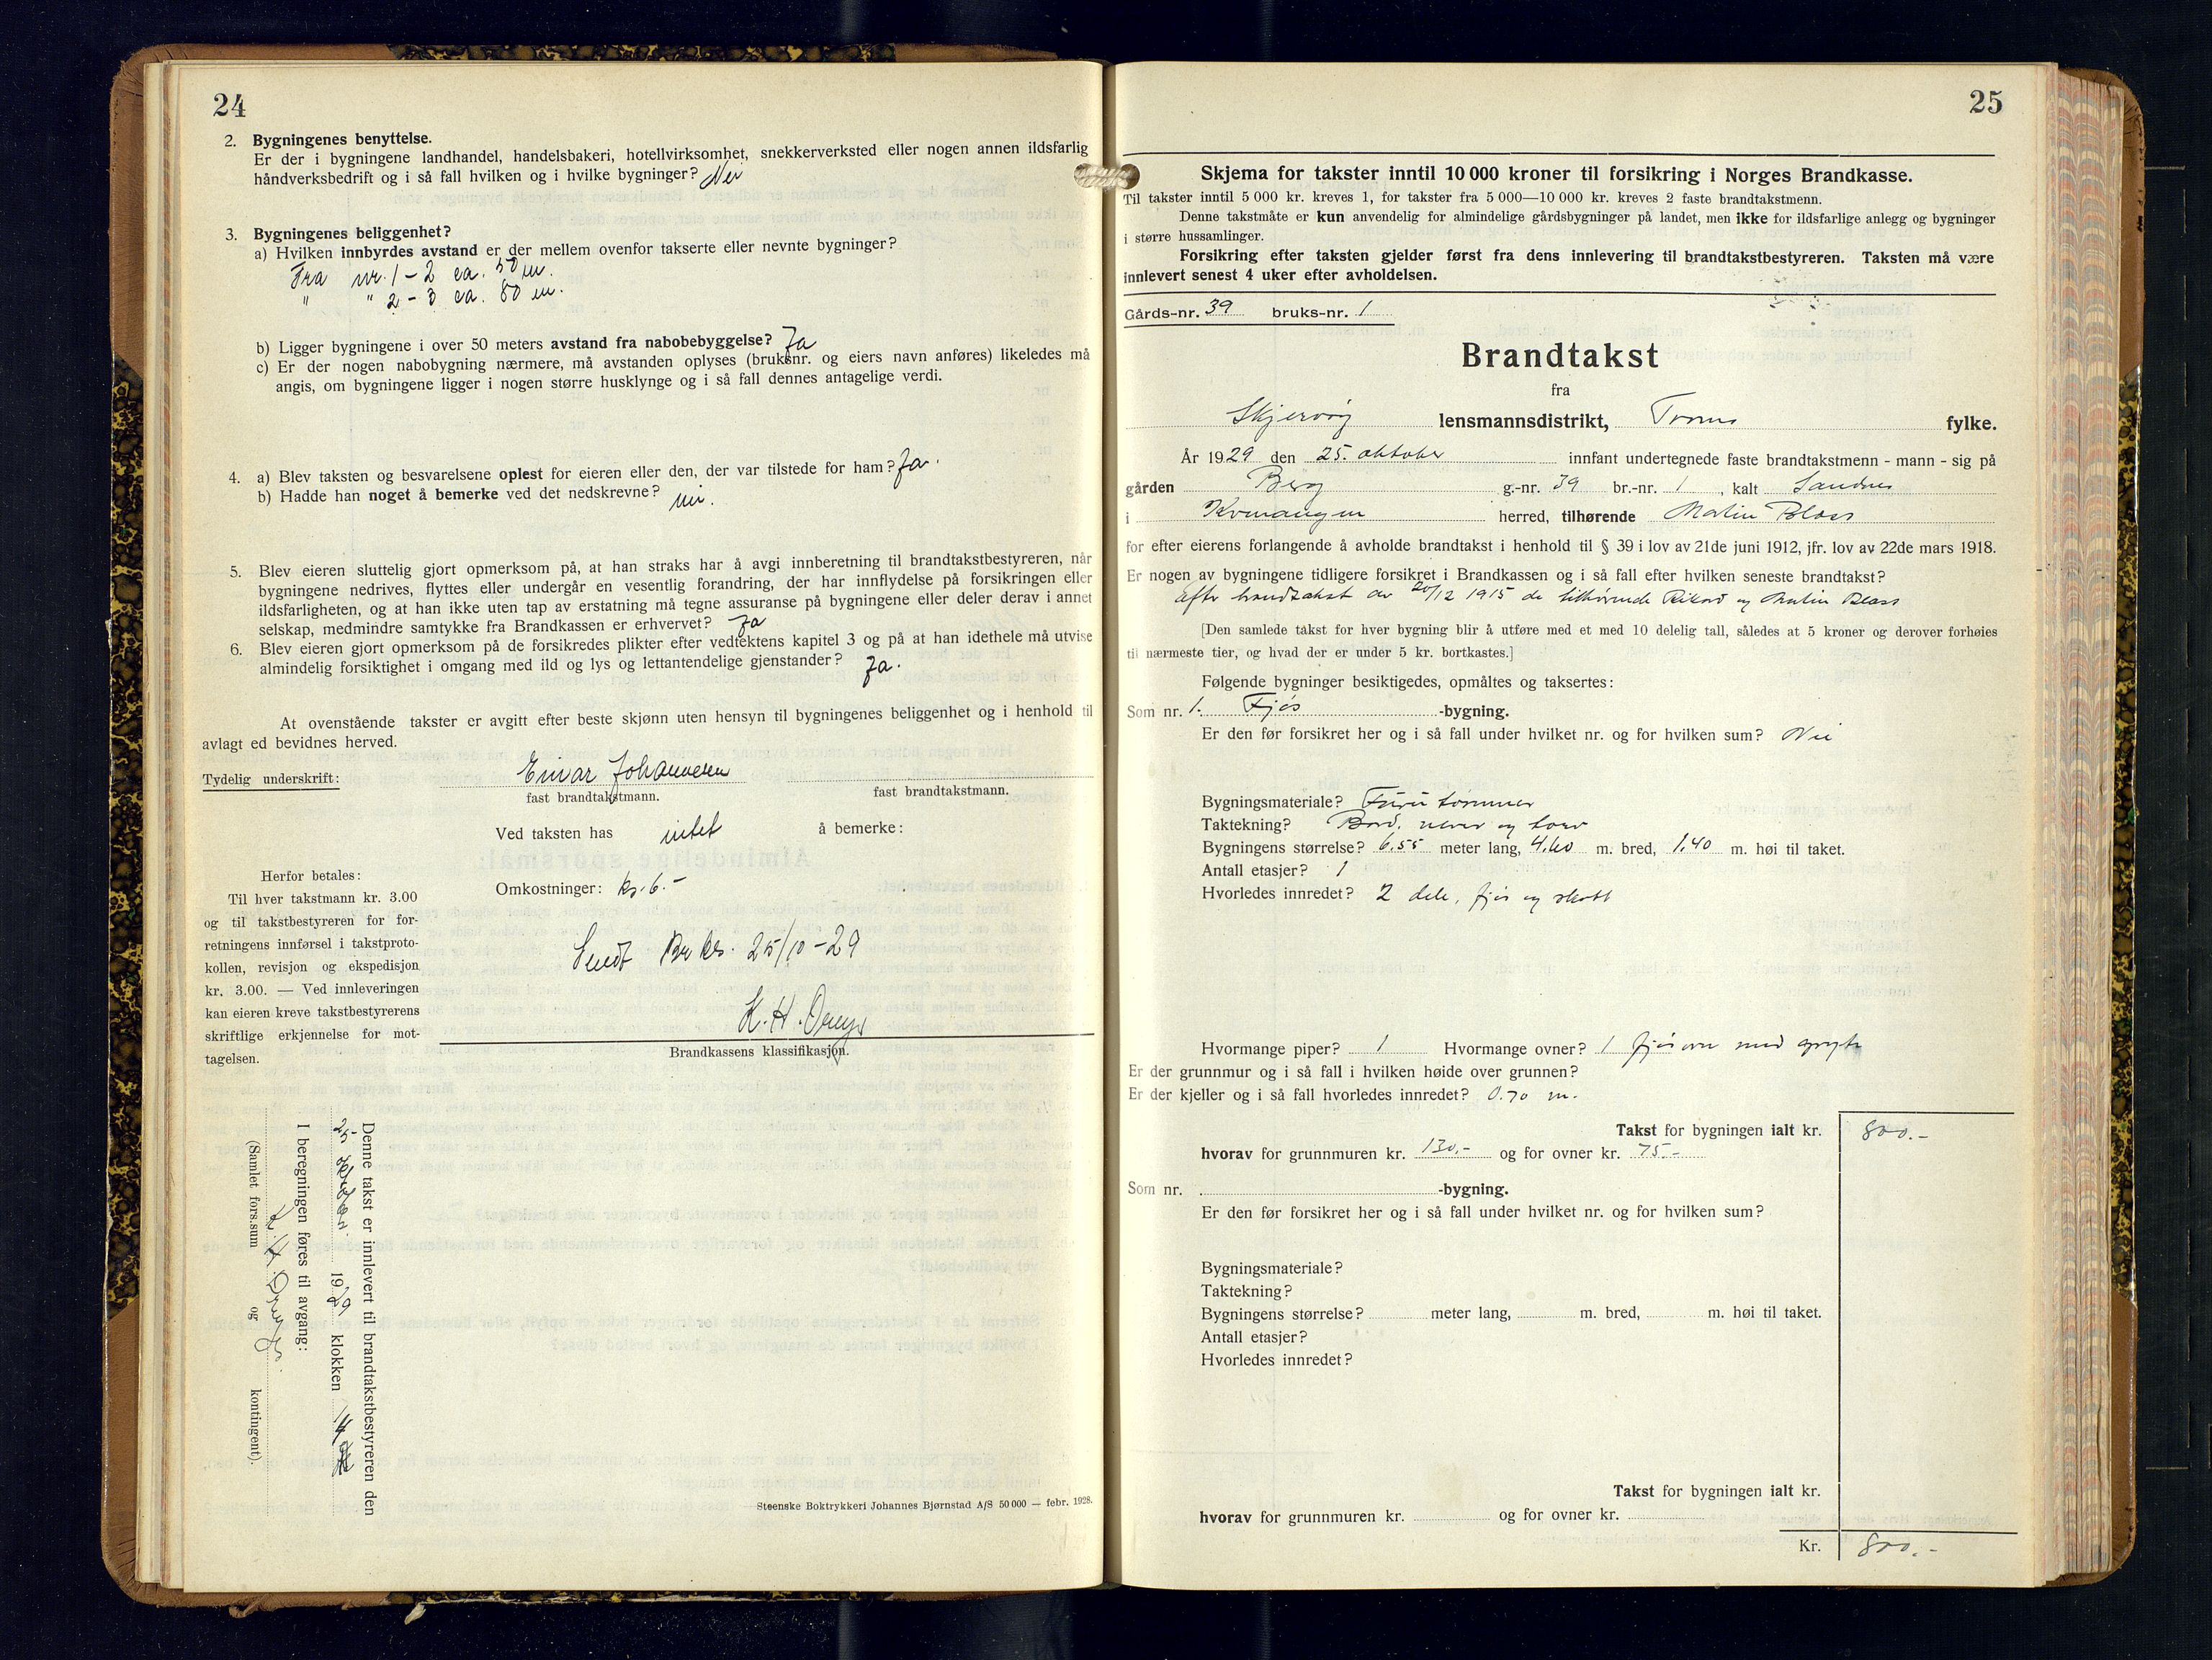 24
2. Bygningenes benyttelse.
Er der i bygningene landhandel, handelsbakeri, hotellvirksomhet, snekkerverksted eller nogen annen ildsfarlig
håndverksbedrift og i så fall hvilken og i hvilke bygninger? Nei
3. Bygningenes beliggenhet?
a) Hvilken innbyrdes avstand er der mellem ovenfor takserte eller nevnte bygninger?
Fra nr. 1 - 2 ca. 50 m.
" " 2 - 3 ca. 80 m.
b) Ligger bygningene i over 50 meters avstand fra nabobebyggelse? Ja
c) Er der nogen nabobygning nærmere, må avstanden oplyses (bruksnr. og eiers navn anføres) likeledes må
angis, om bygningene ligger i nogen større husklynge og i så fall dennes antagelige verdi.
4. a) Blev taksten og besvarelsene oplest for eieren eller den, der var tilstede for ham? Ja.
b) Hadde han noget å bemerke ved det nedskrevne? nei.
5. Blev eieren sluttelig gjort opmerksom på, at han straks har å avgi innberetning til brandtakstbestyreren, når
bygningene nedrives, flyttes eller undergår en vesentlig forandring, der har innflydelse på forsikringen eller
ildsfarligheten, og at han ikke uten tap av erstatning må tegne assuranse på bygningene eller deler derav i annet
selskap, medmindre samtykke fra Brandkassen er erhvervet? Ja
6. Blev eieren gjort opmerksom på de forsikredes plikter efter vedtektens kapitel 3 og på at han idethele må utvise
almindelig forsiktighet i omgang med ild og lys og lettantendelige gjenstander? Ja.
At ovenstående takster er avgitt efter beste skjønn uten hensyn til bygningenes beliggenhet og i henhold til
avlagt ed bevidnes herved.
Tydelig underskrift: Einar Johannesen
fast brandtakstmann. fast brandtakstmann.
Ved taksten has intet å bemerke:
Omkostninger: kr. 6.-
Herfor betales:
Til hver takstmann kr. 3.00
og til takstbestyreren for for-
retningens innførsel i takstproto-
kollen, revisjon og ekspedisjon
kr. 3.00. — Ved innleveringen
kan eieren kreve takstbestyrerens
skriftlige erkjennelse for mot-
tagelsen.
Sendt Br ks. 25/10 - 29
K. H.
Brandkassens klassifikasjon.
Denne takst er innlevert til brandtakstbestyreren den
25- oktober. 1929 klokken 14
I beregningen føres til avgang:
K. H.
(Samlet fors.sum og kontingent).
Steenske Boktrykkeri Johannes Bjørnstad A/S 50 000 — febr. 1928.
25
Skjema for takster inntil 10 000 kroner til forsikring i Norges Brandkasse.
Til takster inntil 5 000 kr. kreves 1, for takster fra 5 000—10 000 kr. kreves 2 faste brandtakstmenn.
Denne takstmåte er kun anvendelig for almindelige gårdsbygninger på landet, men ikke for ildsfarlige anlegg og bygninger
i større hussamlinger.
Forsikring efter taksten gjelder først fra dens innlevering til brandtakstbestyreren. Taksten må være
innlevert senest 4 uker efter avholdelsen.
Gårds-nr. 39 bruks-nr. 1
Brandtakst
fra
Skjervøy lensmannsdistrikt, Troms fylke.
År 1929 den 25. oktober innfant undertegnede faste brandtakstmenn - mann - sig på
gården Berg g.-nr. 39 br.-nr. 1, kalt Sandnes
i Kvænangen herred, tilhørende Malin Blass
for efter eierens forlangende å avholde brandtakst i henhold til § 39 i lov av 21de juni 1912, jfr. lov av 22de mars 1918.
Er nogen av bygningene tidligere forsikret i Brandkassen og i så fall efter hvilken seneste brandtakst?
efter brandtakst av 20/12 1915 de tilhørende Rikard og Malin Blass
[Den samlede takst for hver bygning blir å utføre med et med 10 delelig tall, således at 5 kroner og derover forhøies
til nærmeste tier, og hvad der er under 5 kr. bortkastes.]
Følgende bygninger besiktigedes, opmåltes og taksertes:
Som nr. 1. Fjøs -bygning.
Er den før forsikret her og i så fall under hvilket nr. og for hvilken sum? Nei
Bygningsmateriale? Furu tømmer
Taktekning? Bord, never og torv
Bygningens størrelse? 6,55 meter lang, 4,60 m. bred, 1,40 m. høi til taket.
Antall etasjer? 1
Hvorledes innredet? 2 dele, fjøs og skott
Hvormange piper? 1 Hvormange ovner? 1 fjøsovn med gryte
Er der grunnmur og i så fall i hvilken høide over grunnen?
Er der kjeller og i så fall hvorledes innredet? 0.70 m.
Takst for bygningen ialt kr. 800.-
hvorav for grunnmuren kr. 130,- og for ovner kr. 75.-
Som nr. -bygning.
Er den før forsikret her og i så fall under hvilket nr. og for hvilken sum?
Bygningsmateriale?
Taktekning?
Bygningens størrelse? meter lang, m. bred, m. høi til taket.
Antall etasjer?
Hvorledes innredet?
Takst for bygningen ialt kr.
hvorav for grunnmuren kr. og for ovner kr.
Kr. 800.-